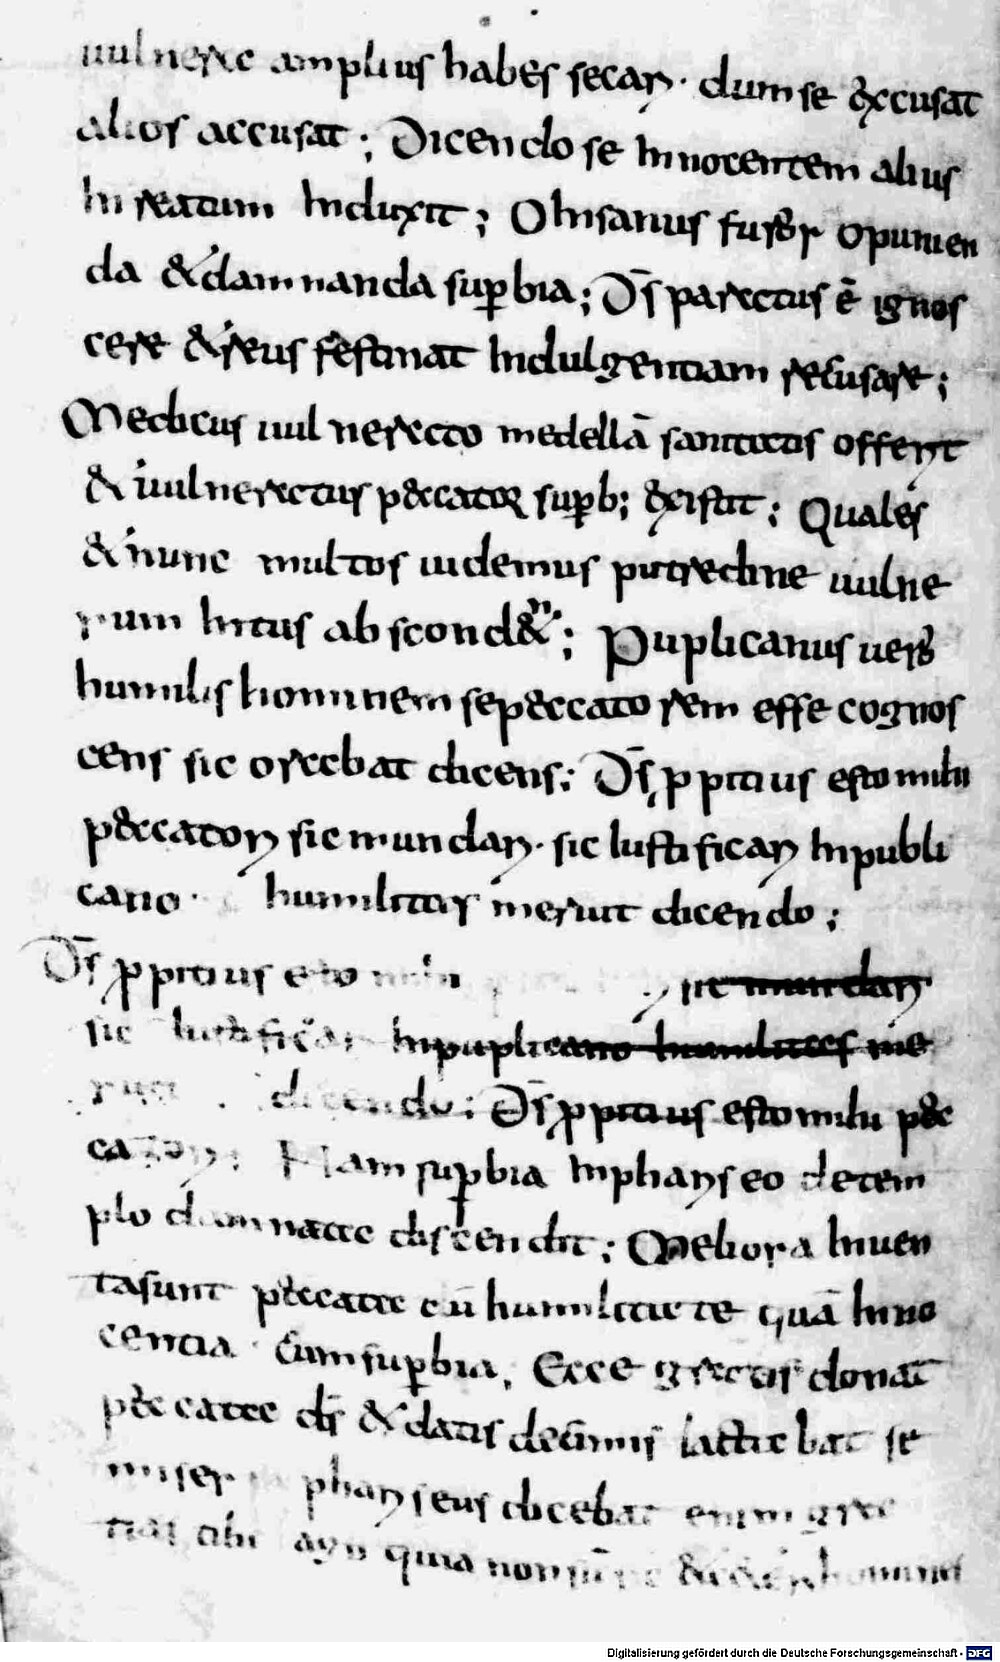 uulnera amplius habes secari. dum se excusat
alios accusat; Dicendo se Innocentem alius
In reatum Induxit; O Insanus furor opunien
da & damnanda sup̱bia; Ds̄ paratus ē ignos
cere & reus festinat Indulgentiam recusare;
Medicus uulnerato medellā sanitatis offert
& uulneratus peccator sup̱b; existit; Quales
& nunc multos uidemus putredine uulne
rum Intus abscond&ⁿ; Puplicanus uero
humilis hominem se peccatorem esse cognos
cens sic orabat dicens; Ds̄ p̱pitius esto mihi
peccatori sic mundari. sic Iustificari In publi
cano. humilitas meruit dicendo;
Ds̄ p̱pitius esto mihi sic mundari
sic Iustificari In puplicano humilitas me
ruit dicendo; Ds̄ p̱pitius esto mihi pec
catori; Nam sup̱bia In phariseo de tem
plo damnata discendit; Meliora Inuen
ta sunt peccata cū humilitate quā Inno
centia cum sup̱bia, Ecce gratis donat
peccata ds̄ & datis decimis Iactabat se
miser phariseus dicebat enim gra
tias tibi ago quia non sū & homines
Digitalisierung gefördert durch die Deutsche Forschungsgemeinschaft - DFG